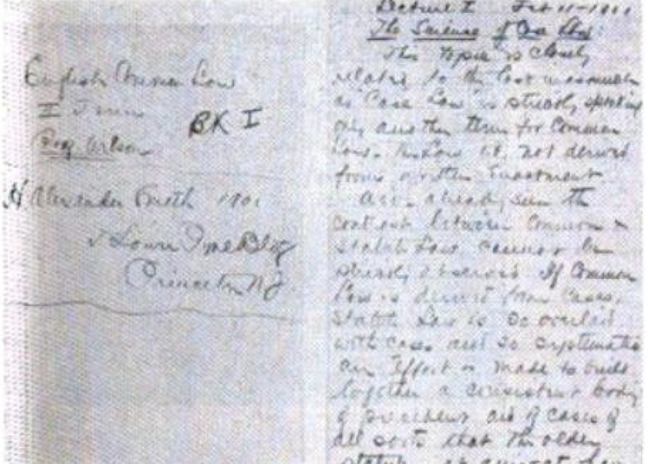 English Common Law
II Term
BK I
Prof Wilson
H Alexander Smith 1901
Pyne Bldg
Princeton N.J.
Lecture I Feb 11-1901
The Science of Case Law:
This topic is closely
related to the last inasmuch
as Case Law is strictly speaking
only another term for Common
Law. the Law not derived
from written enactment.
already seen the
contrast between Common &
Statute Law cannot be
strictly observed. If Common
Law is derived from Cases,
Statute Law is so overlaid
with cases and so systematic
an effort is made to build
together a consistent body
of precedent out of cases of
all sorts that the older
statute